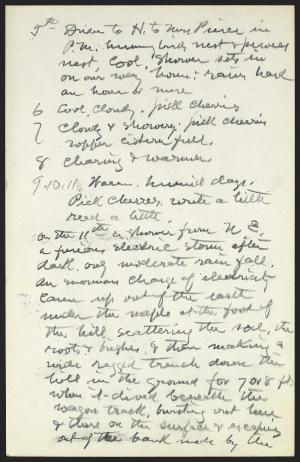 5th Drive to H. to Mrs Pierce in
P.M. humming birds nest & pewees
nest, Cool. Shower sets in
on our way home: rains hard
an hour or more
6 Cool, cloudy. pick cherries
7 Cloudy & showery. pick cherries
copper cistern full.
8 Clearing & warmer
9-10-11, Warm. humid days.
Pick cherries, write a little
read a little.
On the 11th a shower from N. E.
a furious electric storm after
dark, only moderate rain fall.
An enormous charge of electricity
came up out of the earth
under the maple at the foot of
the hill, scattering the soil, the
roots & bushes, & then making a
wide ragged trench down the
hill in the ground for 7 or 8 ft.
when it dived beneath the
wagon track, bursting out here
& there on the surface & escaping
out of the bank made by the